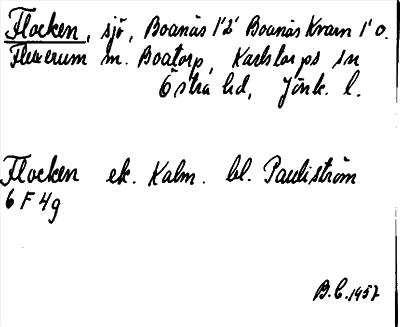 Flocken, sjö, Boanäs 1'2' Boanäs Kvarn 1' o.
Fluxerum m. Boatorp, Karlstorps sn
Östra hd, Jönk. l.
Flocken ek. Kalm. bl. Pauliström
6 F 4g
B.C. 1957